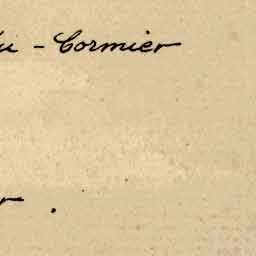 u - Cormier
r.